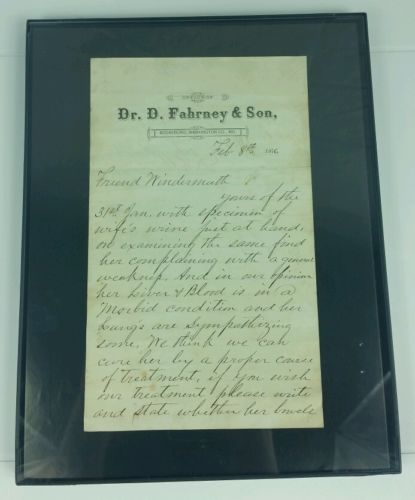 OFFICE OF
Dr. D. Fahrney & Son,
BOONSBORO, WASHINGTON CO., MD.
Feb 8th 188
Friend Windermuth
yours of the
31st Jan. with specimen of
wife's urine just at hand,
on examining the same find
her complaining with a general
weakness. And in our opinion
her Liver & Blood is in a
Morbid condition and her
Lungs are Sympathizing
some. We think we can
cure her by a proper course
of treatment, if you wish
our treatment please write
and state whether her bowels